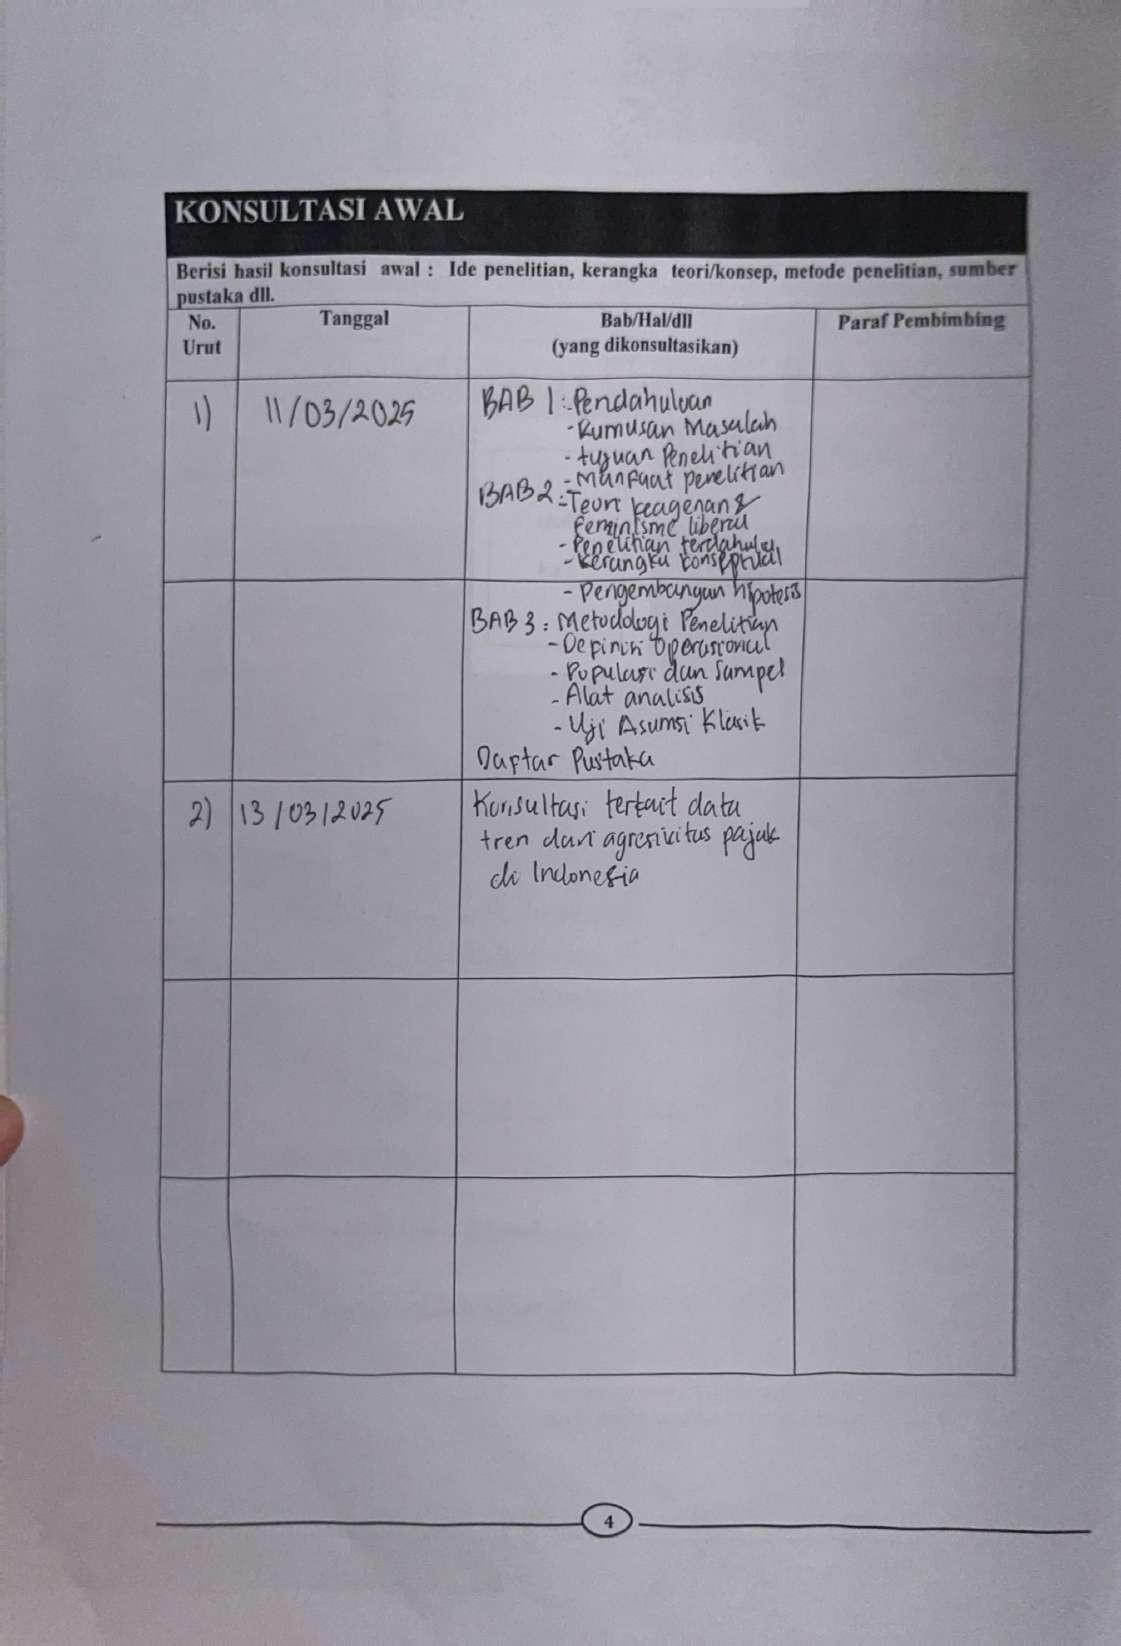 KONSULTASI AWAL
Berisi hasil konsultasi awal : Ide penelitian, kerangka teori/konsep, metode penelitian, sumber
pustaka dll.
No. Urut
Tanggal
Bab/Hal/dll
(yang dikonsultasikan)
Paraf Pembimbing
1)
11/03/2025
BAB 1 : - Pendahuluan
- Rumusan Masalah
- tujuan Penelitian
- Manfaat penelitian
BAB 2 : - Teori keagenan &
feminisme liberal
- Penelitian terdahulu
- Kerangka konseptual
- Pengembangan hipotesis
BAB 3 : Metodologi Penelitian
- Definisi Operasional
- Populasi dan Sampel
- Alat analisis
- Uji Asumsi Klasik
Daftar Pustaka
2)
13/03/2025
Konsultasi terkait data
tren dari agresivitas pajak
di Indonesia
4